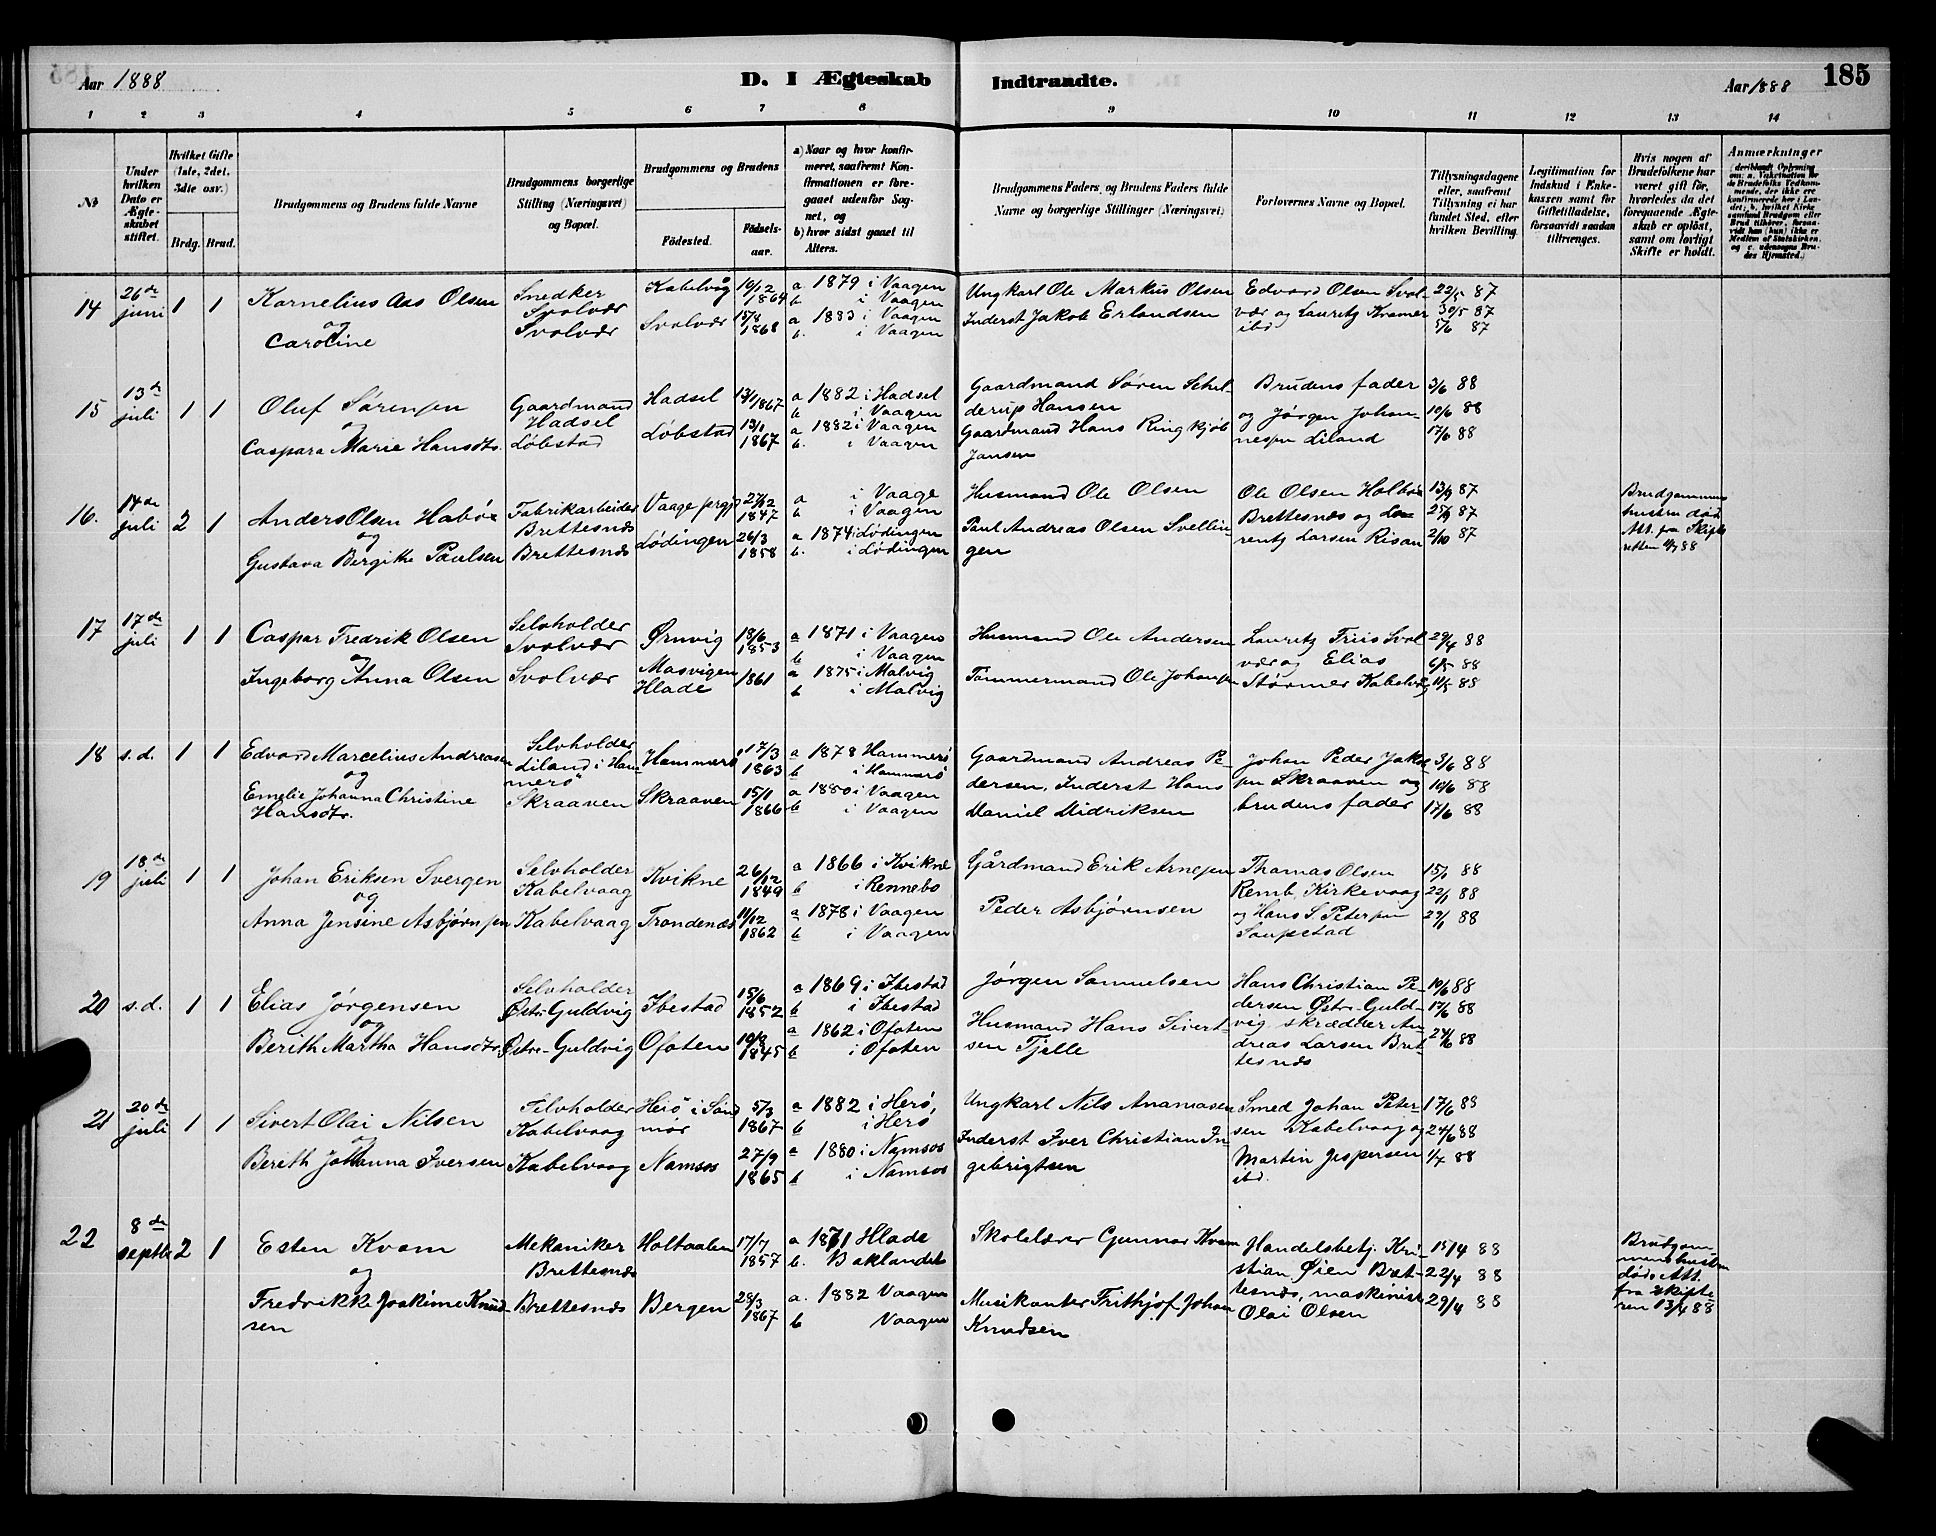 Aar 1888
D. I Ægteskab Indtraadte.
Aar 1888
185
1 2 3 4 5 6 7 8 9 10 11 12 13 14
No
Under hvilken Dato er Ægteskabet stiftet.
Hvilket Gifte (1ste, 2det, 3die osv.)
Brdg. Brud.
Brudgommens og Brudens fulde Navne
Brudgommens borgerlige Stilling (Næringsvei) og Bopæl.
Brudgommens og Brudens
Födested. Födsels-aar.
a) Naar og hvor konfirmeret, saafremt Konfirmationen er foregaaet udenfor Sognet, og
b) hvor sidst gaaet til Alters.
Brudgommens Faders, og Brudens Faders fulde Navne og borgerlige Stillinger (Næringsvei)
Forlovernes Navne og Bopæl.
Tillysningsdagene eller, saafremt Tillysning ei har fundet Sted, efter hvilken Bevilling.
Legitimation for Indskud i Enkekassen samt for Giftetilladelse, forsaavidt saadan tiltrænges.
Hvis nogen af Brudefolkene har været gift før, hvorledes da det foregaaende Ægteskab er opløst, samt om lovligt Skifte er holdt.
Anmærkninger
14 26de juni 1 1
Kornelius Aas Olsen
og
Caroline
Snedker
Svolvær
Svolvær
Kabelvåg
Svolvær
1864
1868
a 1879 i Vaagen
b i Vaagen
a 1883 i Vaagen
b. i Vaagen
Ungkarl Ole Markus Olsen
Inderst Jakob Erlandsen
Edvard Olsen Svol-
vær og Lauritz Kramer
ibd
22/5 87
30/5 87
5/6 87
15 13de juli 1 1
Oluf Sørensen
og
Caspara Marie Hansdtr.
Gaardmand
Hadsel
Løbstad
Hadsel
Løbstad
1867
13/1 1867
a 1882 i Hadsel
b i Vaagen
a 1882 i Vaagen
b. i Vaagen
Gaardmand Søren Schil-
derup Hansen
Gaardmand Hans Ringkjøb
Jansen
Brudens fader
og Jørgen Johan-
nesen Liland
3/6 88
10/6 88
17/6 88
16. 14de juli 2 1
Anders Olsen Habøe
og
Gustava Bergitte Paulsen
Fabrikarbeider
Brettesnæs
Brettesnæs
Vaage prgj
Lødingen
27/12 1847
26/3 1858
a i Vaage
b i Vaagen
a 1874 i Lødingen
b. i Lødingen
Husmand Ole Olsen
Paul Andreas Olsen Svellin-
gen
Ole Olsen Holbøe
Brettesnæs og Lau-
rentz Larsen Risan
13/9 87
25/9 87
2/10 87
Brudgommens
hustru død
Att. fra Skifte
retten 88
17 17de juli 1 1
Caspar Fredrik Olsen
og
Ingeborg Anna Olsen
Selvholder
Svolvær
Svolvær
Ørnvig
Masvigen
Hlade
18/6 1853
1861
a 1871 i Vaagen
b i Vaagen
a 1875 i Malvig
b i Malvig
Husmand Ole Andersen
Tømmermand Ole Johansen
Lauritz Friis Svol
vær og Elias
Størmer Kabelvåg
29/4 88
6/5 88
11/5 88
18 s.d. 1 1
Edvard Marcelius Andreasen
og
Emelie Johanna Christine
Hansdtr.
Selvholder
Liland i Ham
merø
Skraaven
Hammerø
Skraaven
17/3 1863
15/1 1866
a 1878 Hammerø
b i Hammerø
a 1880 i Vaagen
b i Vaagen
Gaardmand Andreas Pe-
dersen, Inderst Hans
Daniel Didriksen
Johan Peder Jakob-
sen Skraaven og
brudens fader
3/6 88
10/6 88
17/6 88
19 18de juli 1 1
Johan Eriksen Svergen
og
Anna Jensine Asbjørnsen
Selvholder
Kabelvaag
Kabelvaag
Kvikne
Trondenæs
26/12 1849
11/12 1862
a 1866 i Kvikne
b i Rennebo
a 1878 i Vaagen
b i Vaagen
Gårdmand Erik Arnesen
Peder Asbjørnsen
Thomas Olsen
Remb. Kirkevaag
og Hans S. Petersen
Saupstad
15/1 88
22/1 88
29/1 88
20 s.d. 1 1
Elias Jørgensen
og
Berith Martha Hansdtr.
Selvholder
Østr. Guldvig
Østr. Guldvig
Ibestad
Ofoten
15/6 1852
19/8 1845
a 1869 i Ibestad
b i Ibestad
a 1862 i Ofoten
b i Ofoten
Jørgen Samuelsen
Husmand Hans Sivert-
sen Tjelle
Hans Christian Pe-
dersen Østr. Guld-
vig skrædder An-
dreas Larsen Bret-
tesnæs
10/6 88
17/6 88
24/6 88
21 20de juli 1 1
Sivert Olai Nilsen
og
Berith Johanna Iversen
Selvholder
Kabelvaag
Kabelvaag
Herø i Sønd
mør
Namsos
5/3 1867
27/9 1865
a 1882 i Herø,
b i Herø
a 1880 i Namsos
b i Namsos
Ungkarl Nils Ananiasen
Inderst Iver Christian In-
gebrigtsen
Smed Johan Peter-
sen Kabelvaag og
Martin Jespersen
ibd.
17/6 88
24/6 88
1/7 88
22 8de septbr 2 1
Esten Kvam
og
Fredrikke Joakime Knud-
sen
Mekaniker
Brettesnæs
Brettesnæs
Holtaalen
Bergen
17/7 1857
28/3 1867
a 1871 Hlade
b. Baklandet
a. 1882 Vaagen
b Vaagen
Skolelærer Gunnar Kvam
Musikanter Frithjof Johan
Knudsen
Handelsbetj. Kri-
stian Øien Bret-
tesnæs, maskinist
Olai Olsen
15/4 88
22/4 88
29/4 88
Brudgom-
mens hustru
død. Att.
fra skifte-
ren 13/4 88